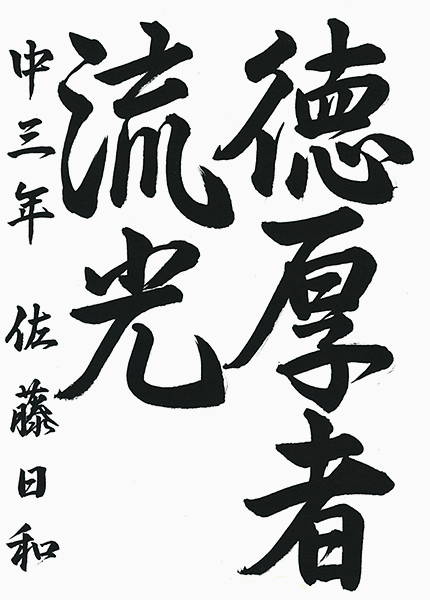 徳厚者
流光
中三年 佐藤日和